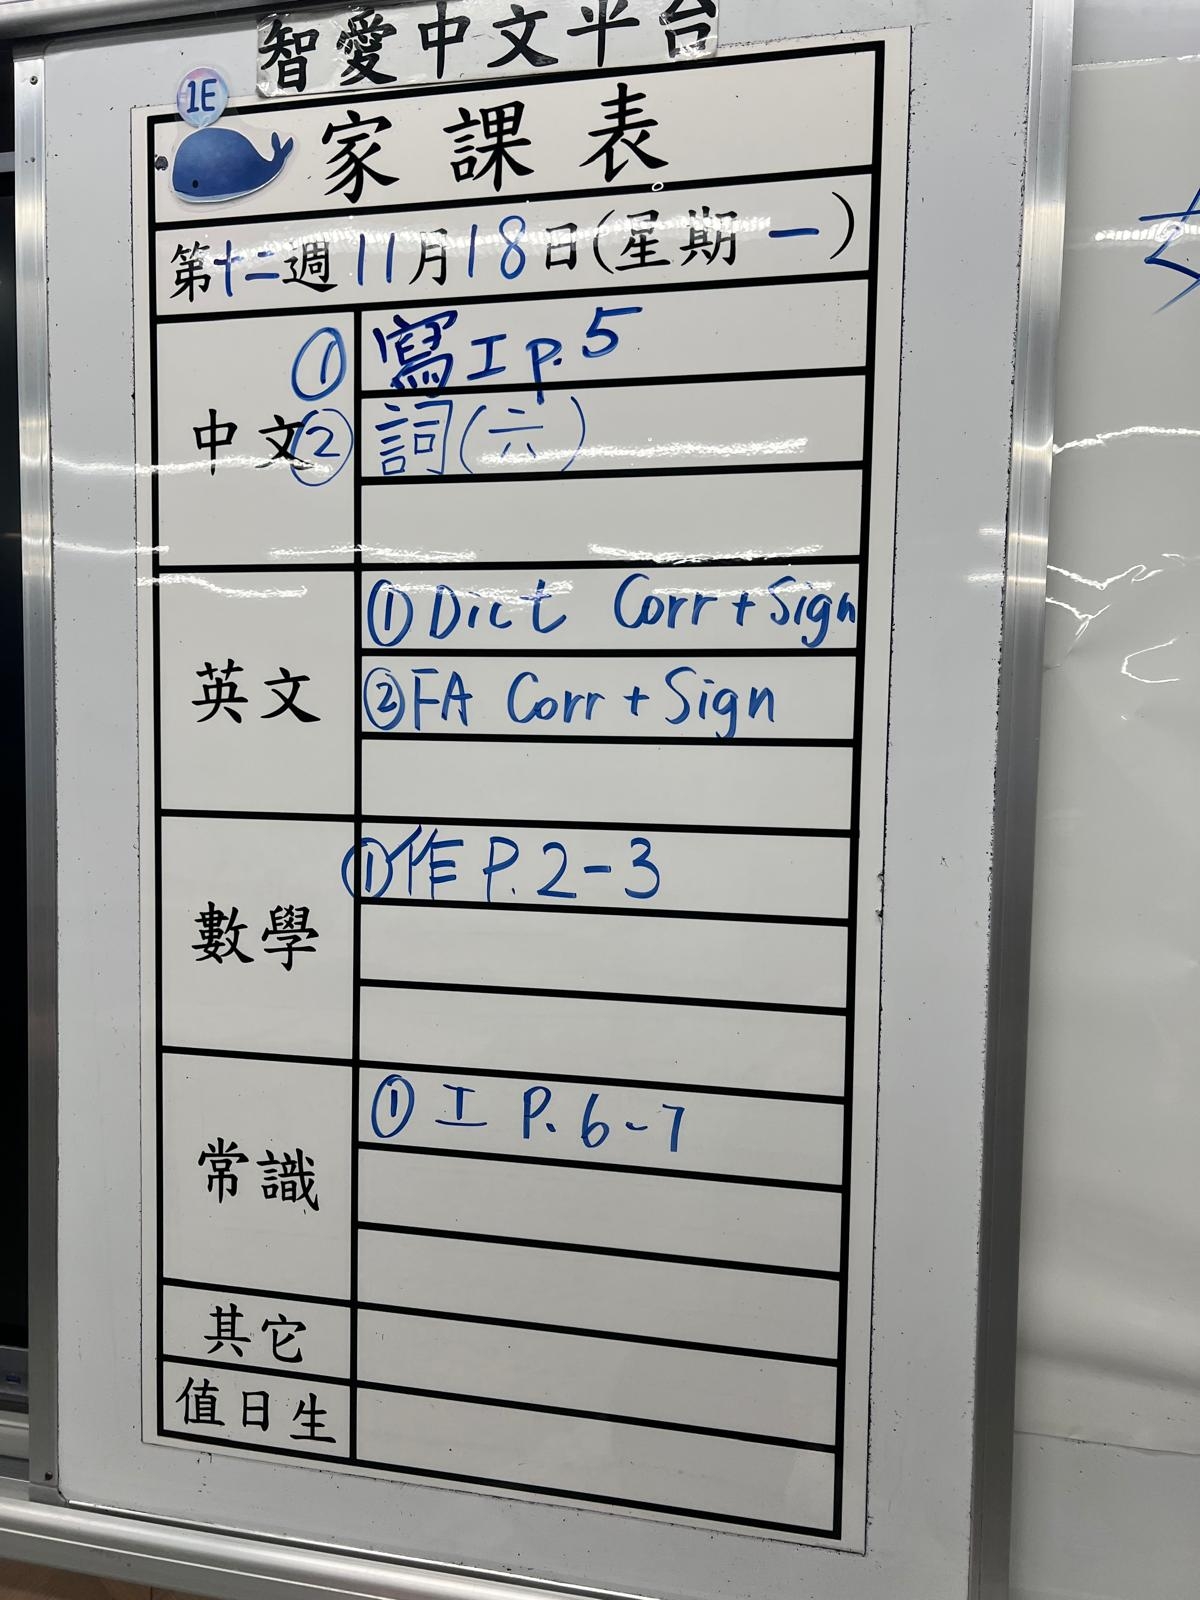 智愛中文平台
1E
家課表
第十二週 11月18日(星期一)
中文
① 寫工 p.5
② 詞(六)
英文
① Dict Corr + Sign
② FA Corr + Sign
數學
① 作 P.2-3
常識
① 工 P.6-7
其它
值日生